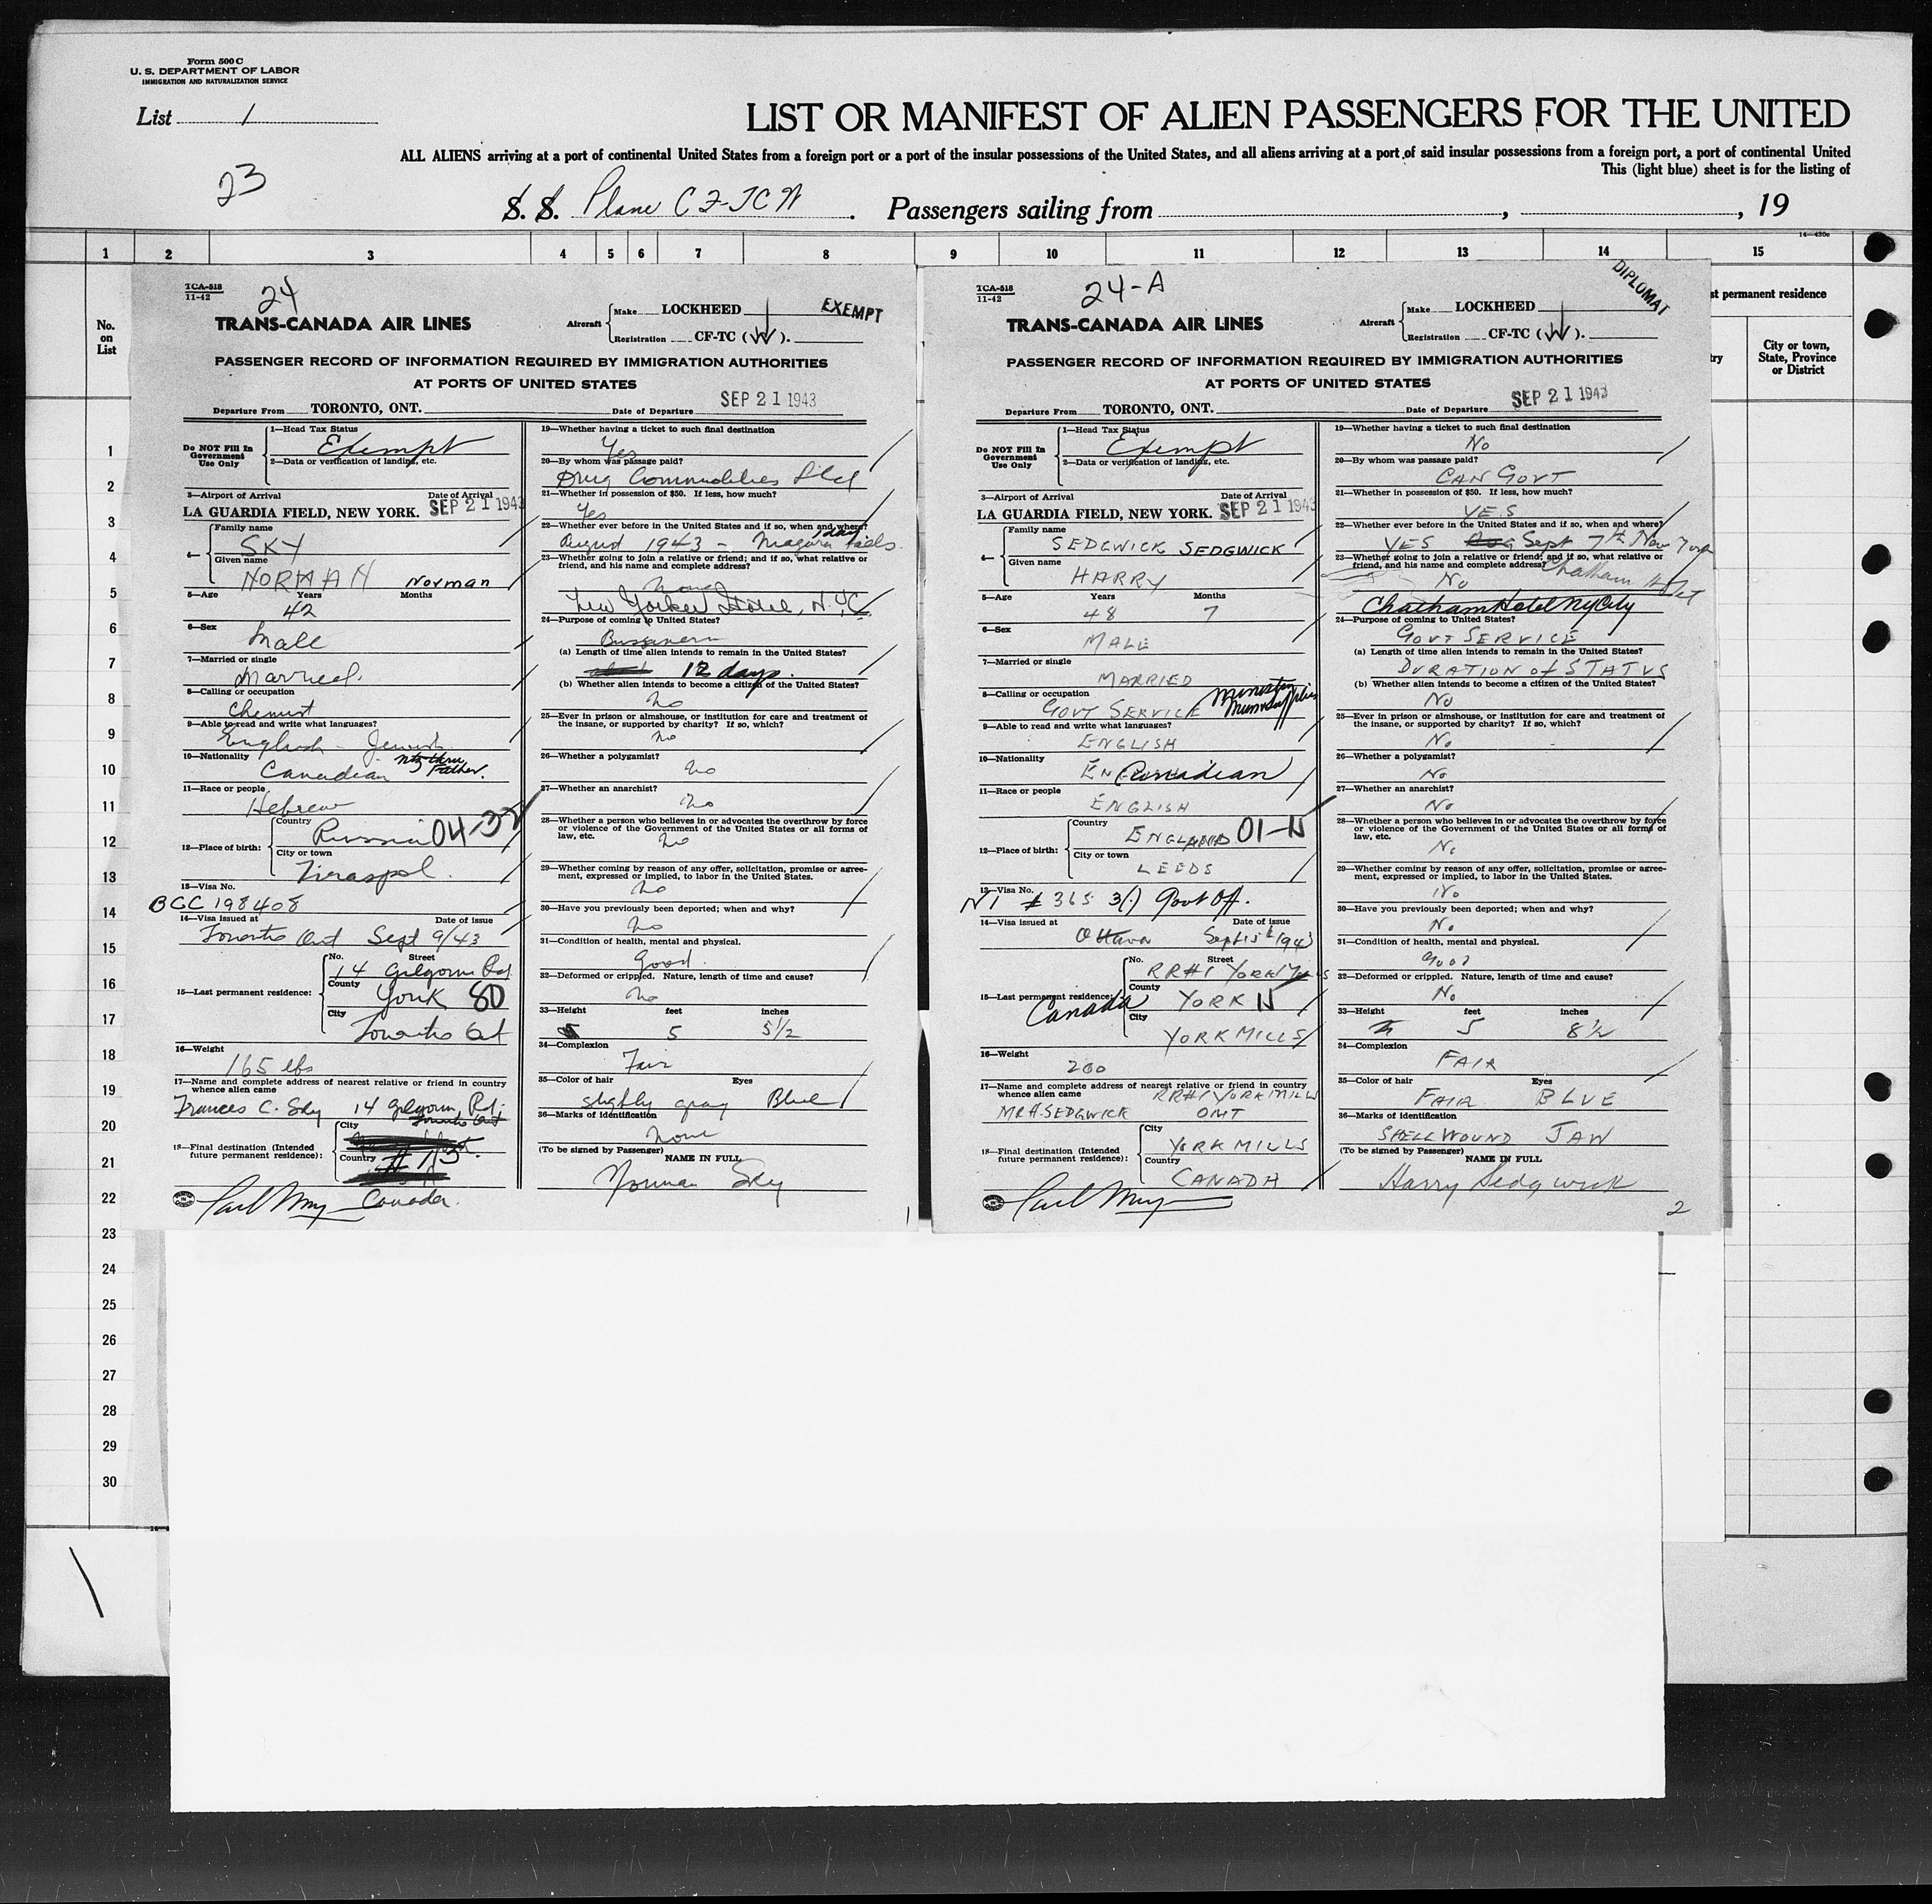 Form 500 C
U. S. DEPARTMENT OF LABOR
IMMIGRATION AND NATURALIZATION SERVICE
List 1
LIST OR MANIFEST OF ALIEN PASSENGERS FOR THE UNITED
ALL ALIENS arriving at a port of continental United States from a foreign port or a port of the insular possessions of the United States, and all aliens arriving at a port of said insular possessions from a foreign port, a port of continental United
This (light blue) sheet is for the listing of
23
S. S. Plane CF-TCW . Passengers sailing from , , 19
1 2 3 4 5 6 7 8 9 10 11 12 13 14 15
No. on List
st permanent residence
try
City or town, State, Province or District
1
2
3
4
5
6
7
8
9
10
11
12
13
14
15
16
17
18
19
20
21
22
23
24
25
26
27
28
29
30
TCA-518
11-42
24
EXEMPT
TRANS-CANADA AIR LINES
Aircraft Make LOCKHEED
Registration CF-TC (W).
PASSENGER RECORD OF INFORMATION REQUIRED BY IMMIGRATION AUTHORITIES
AT PORTS OF UNITED STATES
Departure From TORONTO, ONT. Date of Departure SEP 21 1943
Do NOT Fill In Government Use Only
1—Head Tax Status
Exempt
2—Data or verification of landing, etc.
3—Airport of Arrival Date of Arrival
LA GUARDIA FIELD, NEW YORK. SEP 21 1943
4— Family name
SKY
Given name
NORMAN Norman
5—Age Years Months
42
6—Sex
Male
7—Married or single
Married.
8—Calling or occupation
Chemist
9—Able to read and write what languages?
English - Jewish
10—Nationality
Canadian ntz thru Father.
11—Race or people
Hebrew
12—Place of birth: Country
Russia 04-32
City or town
Tiraspol.
13—Visa No.
BCC 198408
14—Visa issued at Date of issue
Toronto Ont Sept 9/43
15—Last permanent residence: No. Street
14 Gilgorm Rd
County
York 80
City
Toronto Ont
16—Weight
165 lbs
17—Name and complete address of nearest relative or friend in country whence alien came
Frances C. Sky 14 Gilgorm Rd.
Toronto Ont
18—Final destination (Intended future permanent residence): City
Country
#15.
Canada.
19—Whether having a ticket to such final destination
Yes
20—By whom was passage paid?
Drug Commodities Ltd
21—Whether in possession of $50. If less, how much?
Yes
22—Whether ever before in the United States and if so, when and where?
August 1943 - 1 day Niagara Falls.
23—Whether going to join a relative or friend; and if so, what relative or friend, and his name and complete address?
None
New Yorker Hotel, N.Y.C.
24—Purpose of coming to United States?
Business
(a) Length of time alien intends to remain in the United States?
12 days.
(b) Whether alien intends to become a citizen of the United States?
no
25—Ever in prison or almshouse, or institution for care and treatment of the insane, or supported by charity? If so, which?
no
26—Whether a polygamist?
no
27—Whether an anarchist?
no
28—Whether a person who believes in or advocates the overthrow by force or violence of the Government of the United States or all forms of law, etc.
no
29—Whether coming by reason of any offer, solicitation, promise or agreement, expressed or implied, to labor in the United States.
no
30—Have you previously been deported; when and why?
no
31—Condition of health, mental and physical.
Good.
32—Deformed or crippled. Nature, length of time and cause?
no
33—Height feet inches
5 5 1/2
34—Complexion
Fair
35—Color of hair Eyes
slightly gray Blue
36—Marks of identification
none
(To be signed by Passenger)
NAME IN FULL
Norman Sky
1
TCA-518
11-42
24-A
DIPLOMAT
TRANS-CANADA AIR LINES
Aircraft Make LOCKHEED
Registration CF-TC (W).
PASSENGER RECORD OF INFORMATION REQUIRED BY IMMIGRATION AUTHORITIES
AT PORTS OF UNITED STATES
Departure From TORONTO, ONT. Date of Departure SEP 21 1943
Do NOT Fill In Government Use Only
1—Head Tax Status
Exempt
2—Data or verification of landing, etc.
3—Airport of Arrival Date of Arrival
LA GUARDIA FIELD, NEW YORK. SEP 21 1943
4— Family name
SEDGWICK SEDGWICK
Given name
HARRY
5—Age Years Months
48 7
6—Sex
MALE
7—Married or single
MARRIED
8—Calling or occupation
GOVT SERVICE
9—Able to read and write what languages?
ENGLISH
10—Nationality
Canadian
11—Race or people
ENGLISH
12—Place of birth: Country
ENGLAND 01-N
City or town
LEEDS
13—Visa No.
NI # 365 3(1) Govt Off.
14—Visa issued at Date of issue
Ottawa Sept 15th 1943
15—Last permanent residence: No. Street
RR#1 YORK MILLS
County
Canada YORK N
City
YORK MILLS
16—Weight
200
17—Name and complete address of nearest relative or friend in country whence alien came
RR#1 YORK MILLS
MR H. SEDGWICK ONT
18—Final destination (Intended future permanent residence): City
YORK MILLS
Country
CANADA
19—Whether having a ticket to such final destination
No
20—By whom was passage paid?
CAN GOVT
21—Whether in possession of $50. If less, how much?
YES
22—Whether ever before in the United States and if so, when and where?
YES Sept 7th New York
23—Whether going to join a relative or friend; and if so, what relative or friend, and his name and complete address?
Chatham Hotel
No
Chatham Hotel NYCity
24—Purpose of coming to United States?
GOVT SERVICE
(a) Length of time alien intends to remain in the United States?
DURATION of STATUS
(b) Whether alien intends to become a citizen of the United States?
No
25—Ever in prison or almshouse, or institution for care and treatment of the insane, or supported by charity? If so, which?
No
26—Whether a polygamist?
No
27—Whether an anarchist?
No
28—Whether a person who believes in or advocates the overthrow by force or violence of the Government of the United States or all forms of law, etc.
No
29—Whether coming by reason of any offer, solicitation, promise or agreement, expressed or implied, to labor in the United States.
No
30—Have you previously been deported; when and why?
No
31—Condition of health, mental and physical.
Good
32—Deformed or crippled. Nature, length of time and cause?
No
33—Height feet inches
5 8 1/2
34—Complexion
FAIR
35—Color of hair Eyes
FAIR BLUE
36—Marks of identification
SHELL WOUND JAW
(To be signed by Passenger)
NAME IN FULL
Harry Sedgwick
2